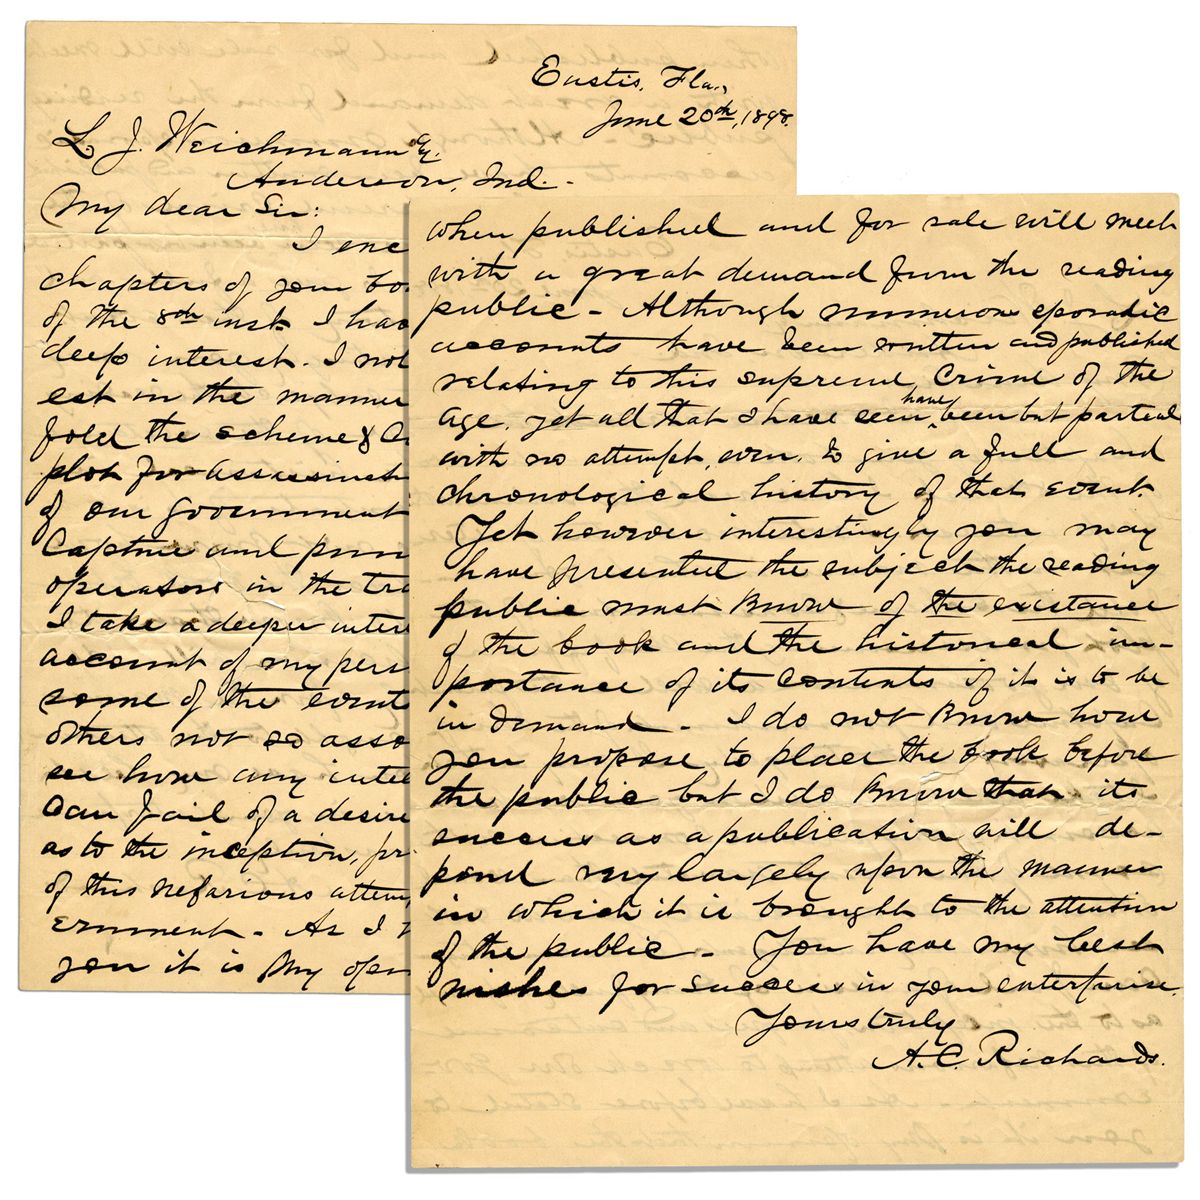 Eustis, Fla.,
June 20th, 1898.
L. J. Weichmann Esq.
Anderson, Ind. -
My dear Sir:
I enc
chapters of your bo
of the 8th inst. I hav
deep interest. I not
est in the manner
fold the scheme &
plot for assassinat
of our government
Capture and pun
operators in the tr
I take a deeper inter
account of my pers
some of the event
others not so asso
see how any inte
Can fail of a desire
as to the inception, pr
of this nefarious attem
ernment - As I
you it is my opin
when published and for sale will meet
with a great demand from the reading
public - Although numerous sporadic
accounts have been written and published
relating to this supreme Crime of the
age, yet all that I have seen have been but partial
with no attempt, even, to give a full and
chronological history of that event.
Yet however interestingly you may
have presented the subject the reading
public must know of the existance
of the book and the historical im-
portance of its contents if it is to be
in demand - I do not know how
you propose to place the book before
the public but I do know that its
success as a publication will de-
pend very largely upon the manner
in which it is brought to the attention
of the public - You have my best
wishes for success in your enterprise.
Yours truly
A. C. Richards.